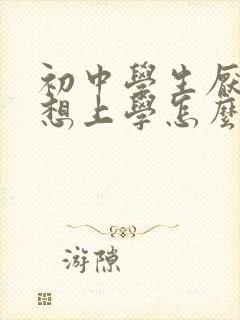 初中學生厭
想上學怎麼
游隙